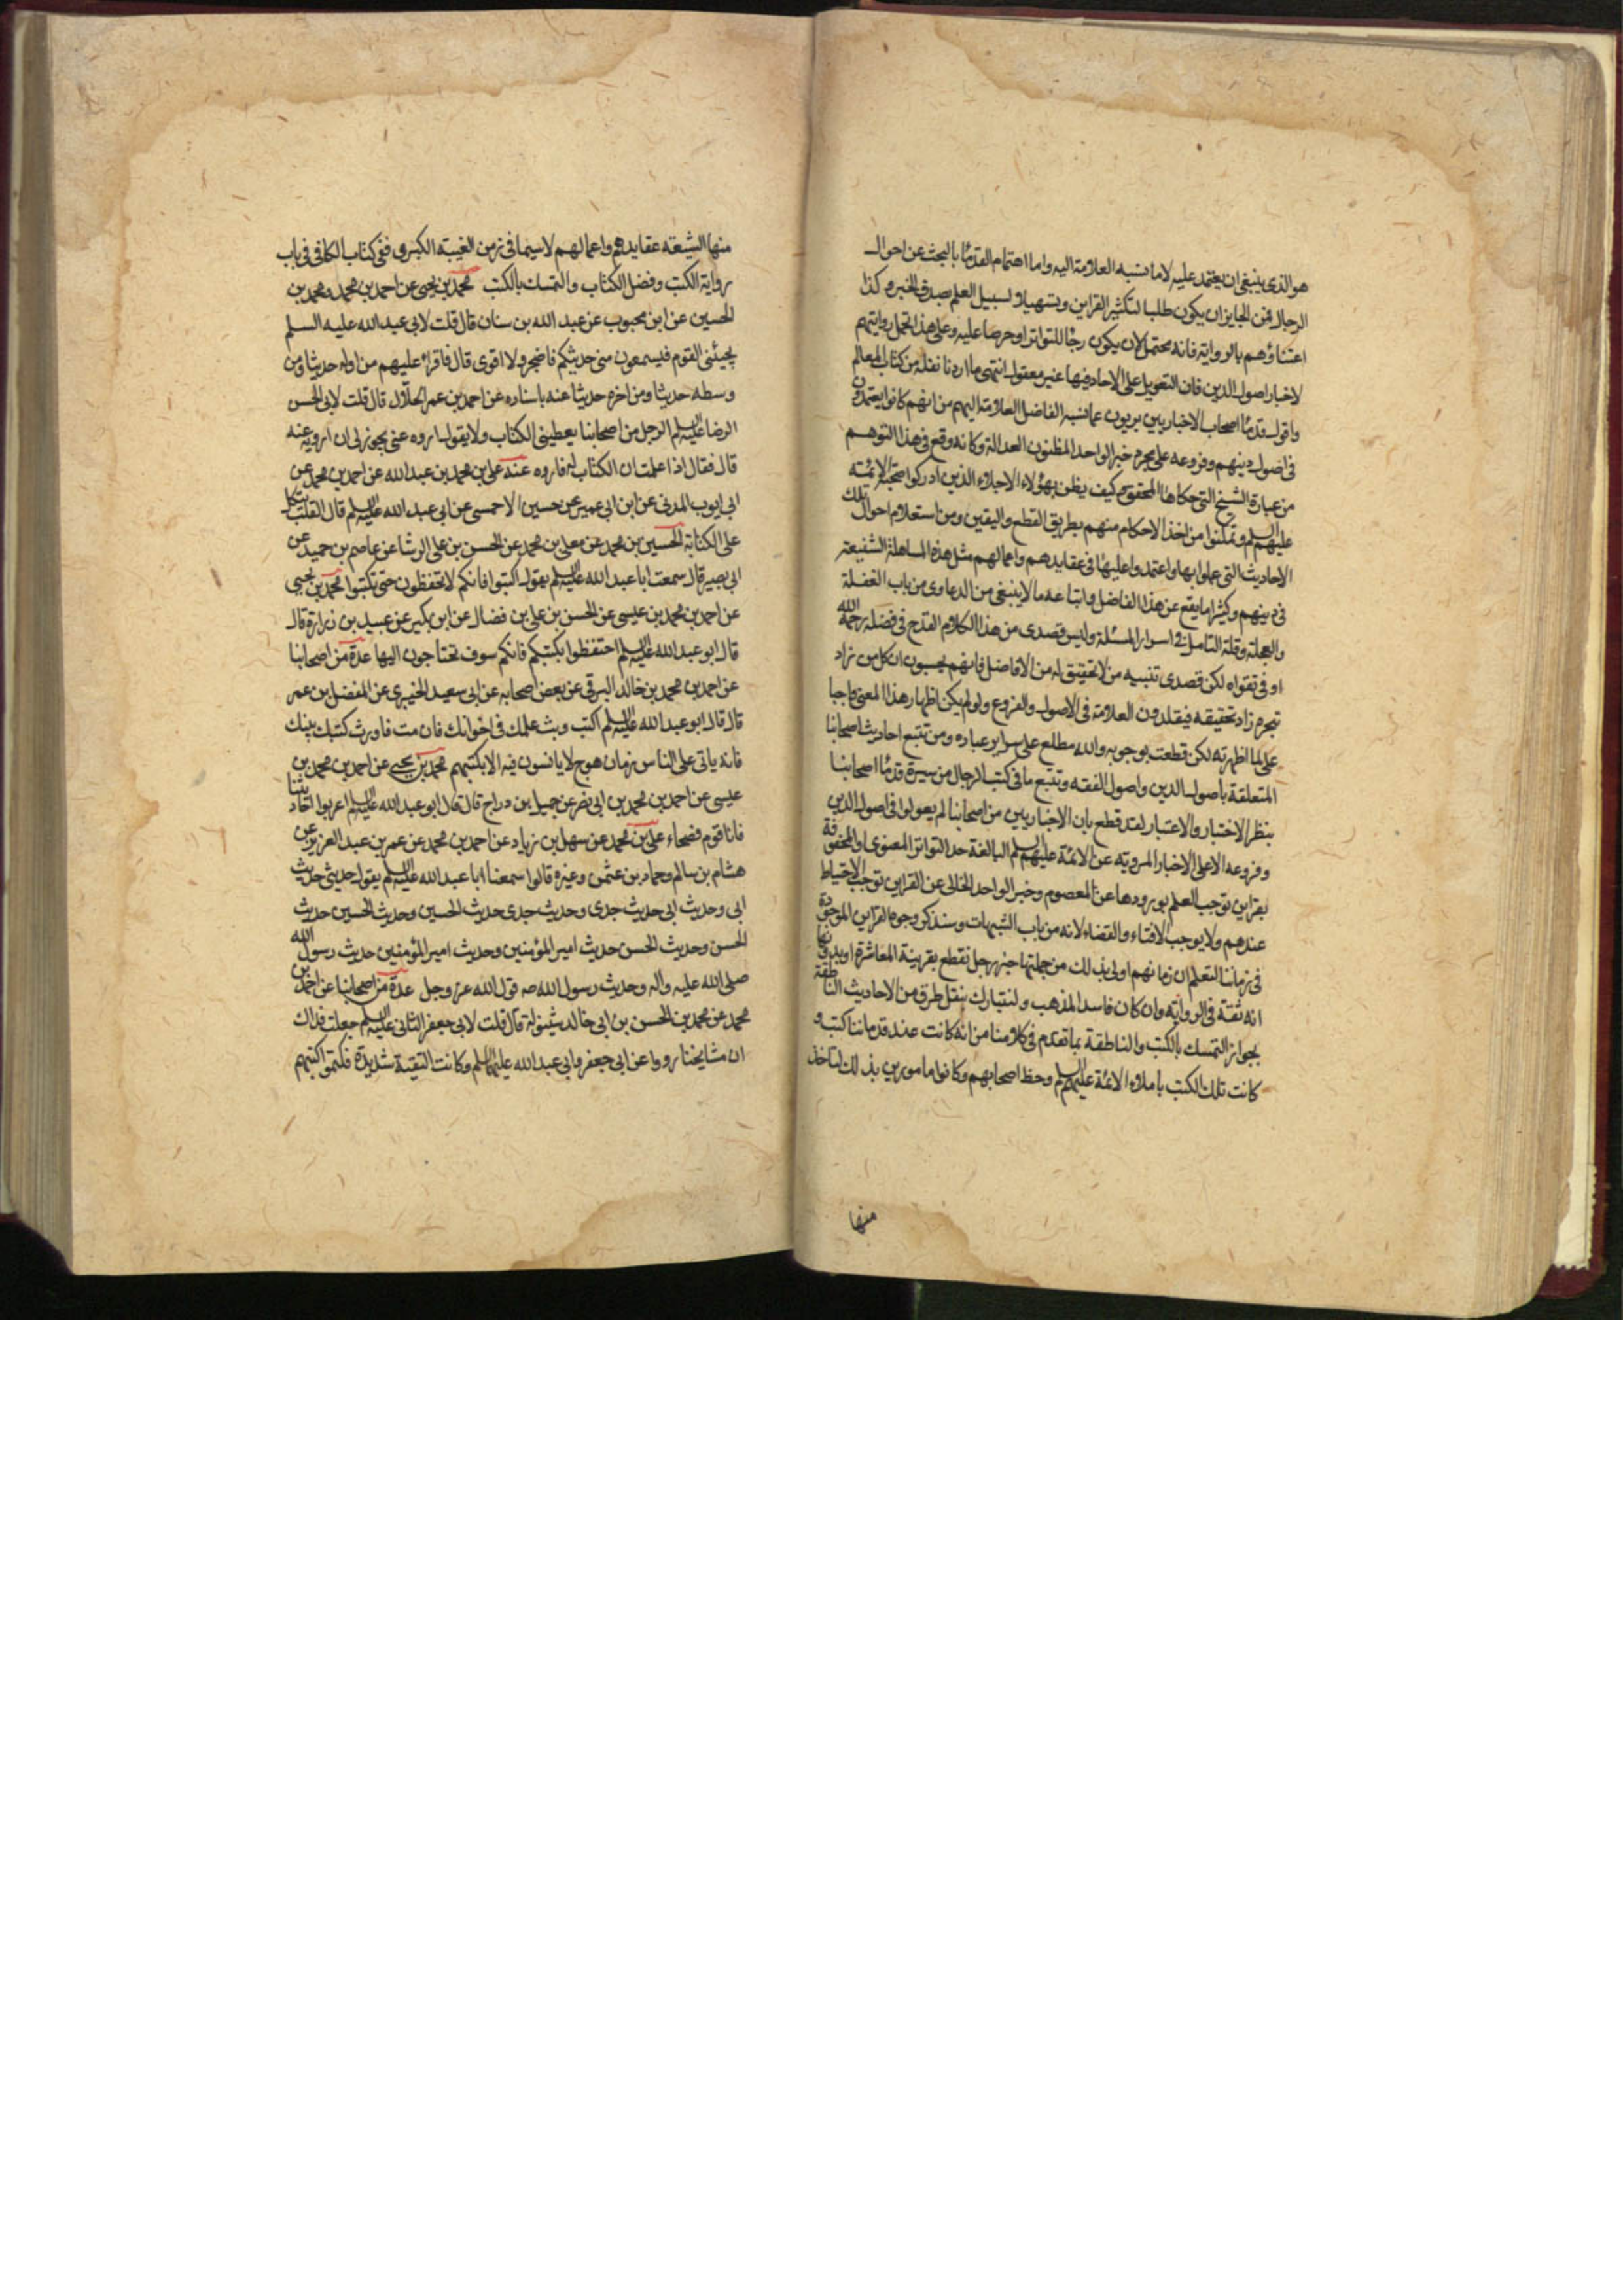 هو الذى ينبغى ان يعتمد عليه لا ما نسبه العلامة اليه واما اهتمام القدمآء بالبحث عن احوال
الرجال فمن الجايز ان يكون طلبا لتكثير القراين وتسهيلا لسبيل العلم بصدق الخبر وكذا
اعتناؤهم بالرواية فانه محتمل لان يكون رجآء للتواتر او حرصا عليه وعلى هذا تحمل روايتهم
لاخبار اصول الدين فان التعويل على الاحاد فيها غير معقول انتهى ما اردنا نقله من كتاب المعالم
واقول قدمآء اصحابنا الاخباريين بريون عما نسبه الفاضل العلامة اليهم من انهم كانوا يعتمدون
فى اصول دينهم وفروعه على مجرد خبر الواحد المظنون العدالة وكانه وقع فى هذا التوهم
من عبارة الشيخ التى حكاها المحقق كيف يظن بهؤلاء الاجلاء الذين ادركوا صحبة الائمة
عليهم السلم وتمكنوا من اخذ الاحكام منهم بطريق القطع واليقين ومن استعلام احوال تلك
الاحاديث التى عملوا بها واعتمدوا عليها فى عقايدهم واعمالهم مثل هذه المساهلة الشنيعة
فى دينهم وكثيرا ما يقع عن هذا الفاضل واتباعه ما لا ينبغى من الدعاوى من باب الغفلة
والعجلة وقلة التامل فى اسرار المسئلة وليس قصدى من هذا الكلام القدح فى فضله رحمه الله
او فى تقواه لكن قصدى تنبيه من لا تحقيق له من الافاضل فانهم يحسبون ان كل من زاد
تبحره زاد تحقيقه فيقلدون العلامة فى الاصول والفروع ولو لم يكن اظهار هذا المعنى واجبا
على لما اظهرته لكن قطعت بوجوبه والله مطلع على سراير عباده ومن تتبع احاديث اصحابنا
المتعلقة باصول الدين واصول الفقه وتتبع ما فى كتب الرجال من سيرة قدمآء اصحابنا
بنظر الاختبار والاعتبار لقد قطع بان الاخباريين من اصحابنا لم يعولوا فى اصول الدين
وفروعه الا على الاخبار المروية عن الائمة عليهم السلم البالغة حد التواتر المعنوى او المحفوفة
بقراين توجب العلم بورودها عن المعصوم وخبر الواحد الخالى عن القراين توجب الاحتياط
عندهم ولا يوجب الافتاء والقضاء لانه من باب الشبهات وسنذكر وجوه القراين الموجودة
فى زماننا لتعلم ان زمانهم اولى بذلك من جملتها خبر رجل نقطع بقرينة المعاشرة او بدونها
انه ثقة فى الرواية وان كان فاسد المذهب ولنتبارك بنقل طرف من الاحاديث الناطقة
بجواز التمسك بالكتب والناطقة بما تقدم فى كلامنا من انه كانت عند قدمائنا كتب و
كانت تلك الكتب باملاء الائمة عليهم السلم وحظ اصحابهم وكانوا مامورين بذلك لتاخذ
منها
منها الشيعة عقايدهم واعمالهم لا سيما فى زمن الغيبة الكبرى ففى كتاب الكافى فى باب
رواية الكتب وفضل الكتاب والتمسك بالكتب محمد بن يحيى عن احمد بن محمد ومحمد بن
الحسين عن ابن محبوب عن عبد الله بن سنان قال قلت لابى عبد الله عليه السلم
يجيئنى القوم فيسمعون منى حديثكم فاضجر ولا اقوى قال فاقراء عليهم من اوله حديثا ومن
وسطه حديثا ومن اخره حديثا عنه باسناده عن احمد بن عمر الحلال قال قلت لابى الحسن
الرضا عليه السلم الرجل من اصحابنا يعطينى الكتاب ولا يقول اروه عنى يجوز لى ان ارويه عنه
قال فقال اذا علمت ان الكتاب له فاروه عنه على بن محمد بن عبد الله عن احمد بن محمد عن
ابى ايوب المدنى عن ابن ابى عمير عن حسين الاحمسى عن ابى عبد الله عليه السلم قال القلب يتكل
على الكتابة الحسين بن محمد عن معلى بن محمد عن الحسن بن على الوشا عن عاصم بن حميد عن
ابى بصير قال سمعت ابا عبد الله عليه السلم يقول اكتبوا فانكم لا تحفظون حتى تكتبوا محمد بن يحيى
عن احمد بن محمد بن عيسى عن الحسن بن على بن فضال عن ابن بكير عن عبيد بن زرارة قال
قال ابو عبد الله عليه السلم احتفظوا بكتبكم فانكم سوف تحتاجون اليها عدة من اصحابنا
عن احمد بن محمد بن خالد البرقى عن بعض اصحابه عن ابى سعيد الخيبرى عن المفضل بن عمر
قال قال ابو عبد الله عليه السلم اكتب وبث علمك فى اخوانك فان مت فاورث كتبك بنيك
فانه ياتى على الناس زمان هرج لا يانسون فيه الا بكتبهم محمد بن يحيى عن احمد بن محمد بن
عيسى عن احمد بن محمد بن ابى نصر عن جميل بن دراج قال قال ابو عبد الله عليه السلم اعربوا احاديثنا
فانا قوم فصحاء على بن محمد عن سهل بن زياد عن احمد بن محمد عن عمر بن عبد العزيز عن
هشام بن سالم وحماد بن عثمن وغيره قالوا سمعنا ابا عبد الله عليه السلم يقول حديثى حديث
ابى وحديث ابى حديث جدى وحديث جدى حديث الحسين وحديث الحسين حديث
الحسن وحديث الحسن حديث امير المؤمنين وحديث امير المؤمنين حديث رسول الله
صلى الله عليه واله وحديث رسول الله صه قول الله عز وجل عدة من اصحابنا عن احمد بن
محمد عن محمد بن الحسن بن ابى خالد شينولة قال قلت لابى جعفر الثانى عليه السلم جعلت فداك
ان مشايخنا رووا عن ابى جعفر وابى عبد الله عليهما السلم وكانت التقية شديدة فكتموا كتبهم